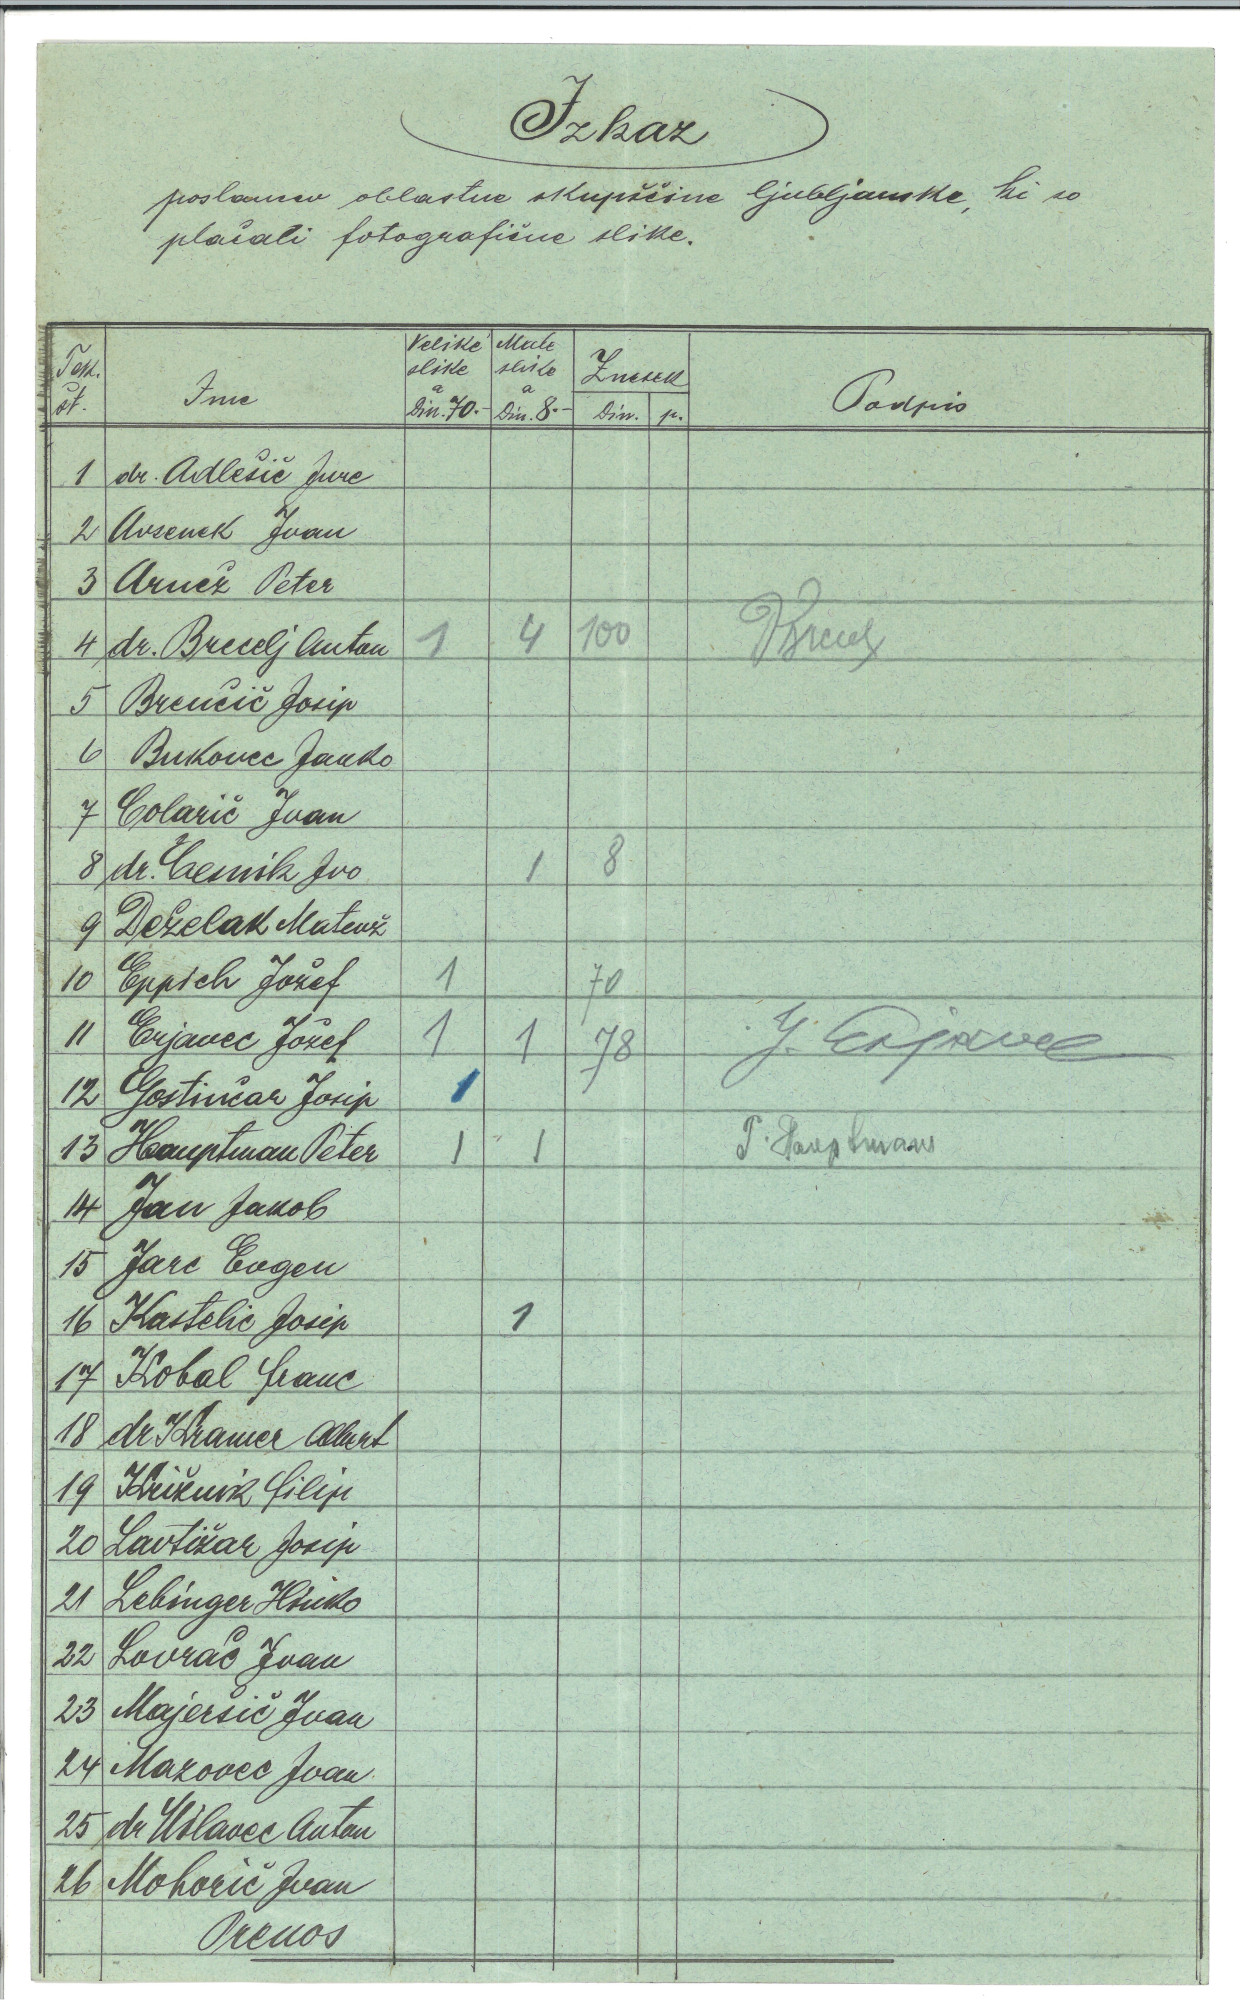 Izkaz
poslancev oblastne skupščine ljubljanske, ki so
plačali fotografične slike.
Tek. št. Ime Velike slike a Din. 70.- Male slike a Din. 8.- Znesek Din. p. Podpis
1 dr. Adlešič Jure
2 Avsenek Ivan
3 Arnež Peter
4 dr. Brecelj Anton 1 4 100 Brecelj
5 Brenčič Josip
6 Bukovec Janko
7 Colarič Ivan
8 dr. Česnik Ivo 1 8
9 Deželak Matevž
10 Eppich Jožef 1 70
11 Erjavec Jožef 1 1 78 J. Erjavec
12 Gostinčar Josip 1
13 Hauptman Peter 1 1 P. Hauptman
14 Jan Jakob
15 Jarc Evgen
16 Kastelic Josip 1
17 Kobal Franc
18 dr Kramer Albert
19 Križnik Filip
20 Lavtižar Josip
21 Lebinger Hinko
22 Lovrač Ivan
23 Majeršič Ivan
24 Mazovec Ivan
25 dr Milavec Anton
26 Mohorič Ivan
Prenos